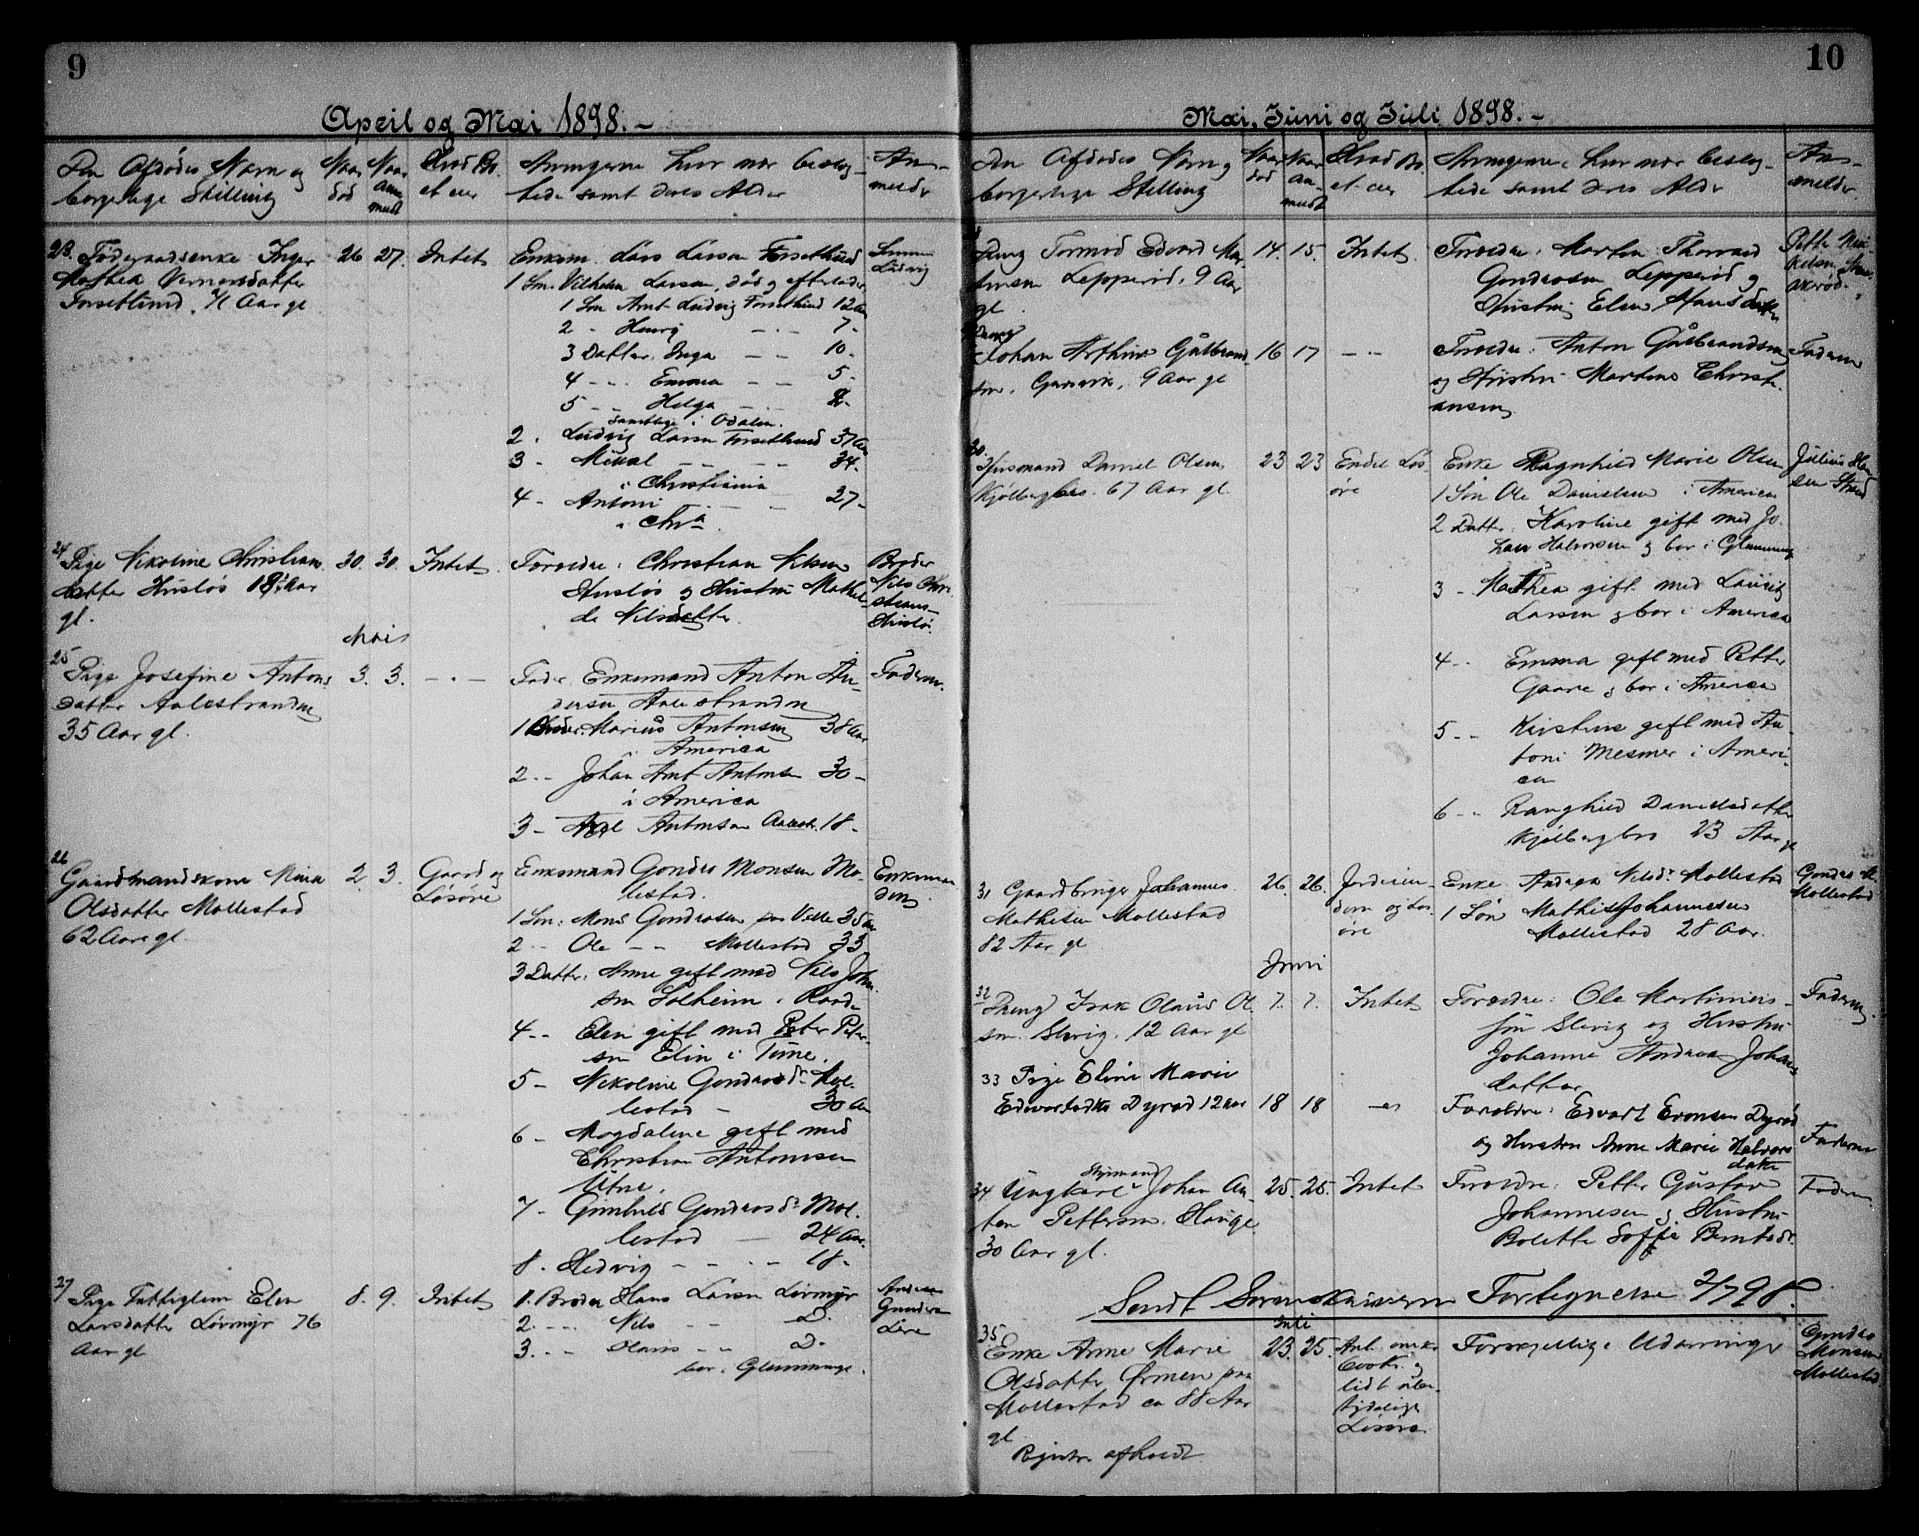 9
April og Mai 1898.-
Den Afdødes Navn og borgerlige Stilling
Naar død
Naar anmeldt
Hvad Bo et eier
Arvingerne, hvor nær beslægtede samt deres Alder
Anmelder
23. Føderaadsenke Inger
Mathea
Forsetlund, 71 Aar gl
26 27. Intet
Enkem. Lars Larsen Forsetlund
1 Søn Vilhelm Larsen, død og efterlader
1 Søn Arnt Ludvig Forsetlund 12 Aar
2 - Henry - - 7 -
3 Datter. Inga - - 10 -
4 - - Emma - - 5 -
5 - - Helga - -
samtlige i Odalen.
2. Ludvig Larsen Forsetlund 37 Aar
3 - Mikal - - 34 -
i Christiania
4 - Antoni - - 27 -
i Chra.
Sønnen
Ludvig
24 Pige Nikoline Christian
datter Husløs 18 Aar
gl.
30. 30. Intet
Forældre: Christian Nilsen
Husløs og Hustru Mathil-
de Nilsdatter
Broder
Nils Chri
stians-
Husløs.
Mais
25 Pige Josefine Antons
datter Aalestranden
35 Aar gl.
3. 3. - . -
Fader Enkemand Anton An
dersen Aalestranden
1 Broder. Marius Antonsen 38 Aar
i America
2 - - Johan Arnt Antonsen 30 -
i America
3 - Axel Antonsen Aalestr. 18 -
Faderen.
26
Gaardmandskone Maria
Olsdatter Mollestad
62 Aar gl.
2 3. Gaard og
Løsøre
Enkemand Gondes Monsen Mo-
lestad.
1 Søn: Mons Gondersen paa Velle 35 Aar
2 - - Ole - - Mollestad 33
3 Datter: Anne gift med Nils John
sen Solheim i Raade
4 - - Elen gift med Peter Peter-
sen Elin i Tune.
5 - Nikoline Gondersdr Mol-
lestad - 30 Aar
6 - Magdalene gift med
Christian Antonsen
Utne.
7 - Gunhild Gondersdr Mol-
lestad - 24 Aar.
8. Hedvig - - - - 18 -
Enkeman
den
27 Pige Fattiglem Elen
Larsdatter Lørmyr 76
Aar gl
8. 9. Intet
1. Broder Hans Larsen Lørmyr
2. - - - Nils - - D.
3 - - - Olaus - - D.
bor i Glemminge.
Andreas
Gunders
10
Mai, Juni og Juli 1898.-
Den Afdødes Navn og borgerlige Stilling
Naar død
Naar anmeldt
Hvad Bo et eier
Arvingerne, hvor nær beslægtede samt deres Alder
Anmelder
Dreng Tormod Edvard Mar
tinsen Lepperød, 9 Aar
gl.
14. 15. Intet
Forældre: Martin Thorvald
Gundersen Lepperød og
Hustru Elen Hansdatter
Dreng
Johan Arthur Gulbrand
sen. Grimsvik, 9 Aar gl
16 17 - -
Forældre: Anton Gulbrandsen
og Hustru Martine Christi
ansen
Faderen
30.
Husmand Daniel Olsen
Kjølbergbro. 67 Aar gl.
23 23 Endel Løs
øre
Enke Ragnhild Marie Olsen
1 Søn Ole Danielsen i America
2 Datter. Karoline gift med Jo.
han Halvorsen og bor i Glemminge
3 - Mathea gift med Lauritz
Larsen og bor i America
4 - - Emma gift med Petter
Gaare og bor i America
5 - - Kristine gift med An
toni Mesmer i Ameri
ca
6 - - Ranghild Danielsdatter
Kjølbergbro 23 Aar gl
Julius Han
sen Strand
31 Gaardbruger Johannes
Mathisen Mollestad
82 Aar gl
26. 26. Jordeien
dom og Løs
øre
Enke Andrea Nilsdr Mollestad
1 Søn Mathis Johannesen
Mollestad 28 Aar.
Gondes
Mollestad
Juni
32
Dreng Isak Olaus Ol
sen. Slevig. 12 Aar gl
7. 7. Intet
Forældre: Ole Martinius-
søn Slevig og Hustru
Johanne Andrea Johans
datter
Faderen
33 Pige Eline Marie
Edvartsdtr Dyrød 12 Aar
18 18 - -
Forældre: Edvart Evensen Dyrød
og Hustru Anne Marie Halvors
datter
Faderen
34 Ungkarl Styrmand Johan An
ton Pettersen. Hauge
30 Aar gl.
25. 25. Intet
Forældre: Petter Gustav
Johannesen og Hustru
Bolette Soffie Berntsdr.
Faderen
Sendt Sorenskriveren Fortegnelse 2/7 98.
Juli
35
Enke Anne Marie
Olsdatter Ørmen paa
Mollestad ca 88 Aar
gl.
Registr. afholdt
23. 25.
lidt ube-
tydelige
Løsøre
Forskjellige Udarvinger
Gondes
Monsen
Mollestad.